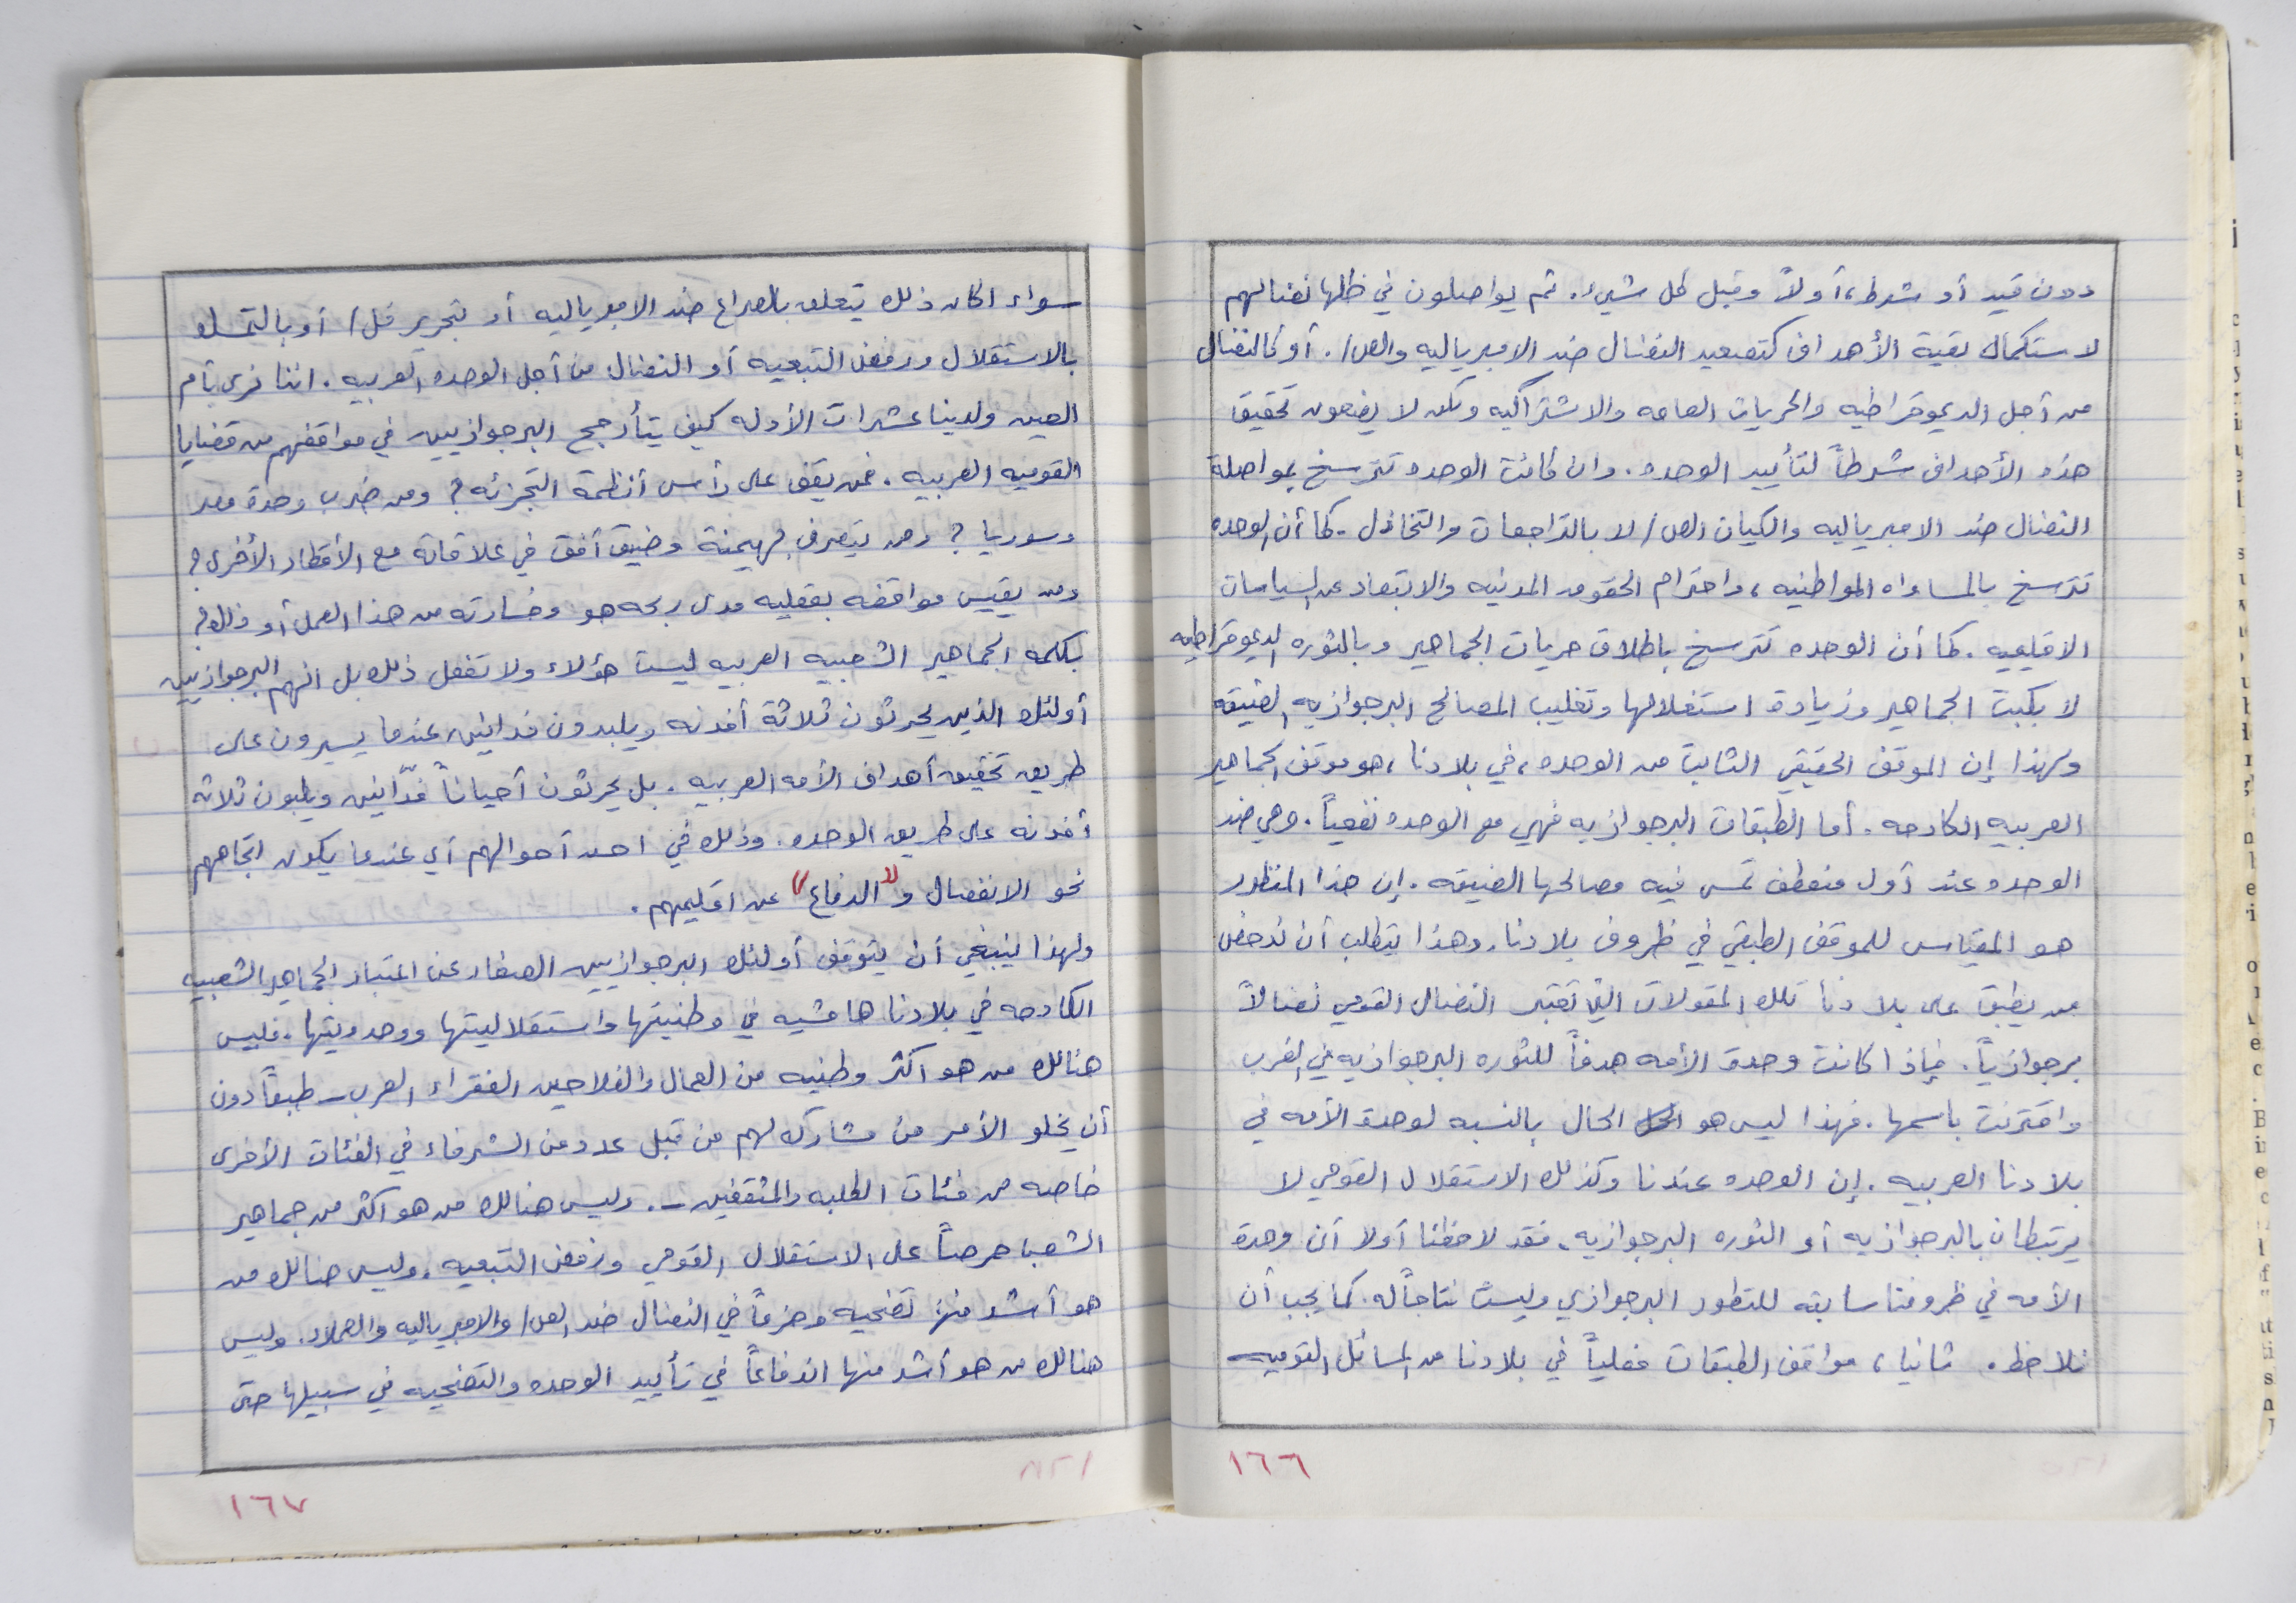 دون قيد أو شرط، أولاً وقبل كل شيء. ثم يواصلون في ظلها نضالهم
لاستكمال بقية الأهداف كتصعيد النضال ضد الامبرياليه والص/. أو كالنضال
من أجل الديموقراطيه والحريات العامه والاشتراكيه ولكن لا يضعون تحقيق
هذه الأهداف شرطاً لتأييد الوحده. وان كانت الوحده تترسخ بمواصلة
النضال ضد الامبرياليه والكيان الص/ لا بالتراجعات والتخاذل. كما أن الوحده
تترسخ بالمساواه المواطنيه، واحترام الحقوق المدنيه والابتعاد عن السياسات
الاقليميه. كما أن الوحده تترسخ باطلاق حريات الجماهير وبالثوره الديموقراطيه
لا بكبت الجماهير وزيادة استغلالها وتغليب المصالح البرجوازيه الضيقه
ولهذا إن الموقف الحقيقي الثابت من الوحده، في بلادنا، هو موقف الجماهير
العربيه الكادحه. أما الطبقات البرجوازيه فهي مع الوحده نفعياً. وهي ضد
الوحده عند أول منعطف تمس فيه مصالحها الضيقه. إن هذا المنظور
هو المقياس للموقف الطبقي في ظروف بلادنا. وهذا يتطلب أن ندحض
من يطبق على بلادنا تلك المقولات التي تعتبر النضال القومي نضالاً
برجوازياً. فإذا كانت وحدة الأمه هدفاً للثوره البرجوازيه في الغرب
واقترنت باسمها. فهذا ليس هو الحال بالنسبه لوحدة الأمه في
بلادنا العربيه. إن الوحده عندنا وكذلك الاستقلال القومي لا
يرتبطان بالبرجوازيه أو الثوره البرجوازيه. فقد لاحظنا أولا أن وحدة
الأمه في ظروفنا سابقه للتطور البرجوازي وليست نتاجاً له. كما يجب أن
نلاحظ. ثانيا، مواقف الطبقات فعلياً في بلادنا من المسائل القوميه
١٦٦
سواء اكان ذلك يتعلق بالصراع ضد الامبرياليه أو تحرير فل/ أو بالتمسك
بالاستقلال ورفض التبعيه أو النضال من أجل الوحده العربيه. اننا نرى بأم
العين ولدينا عشرات الأدله كيف يتأرجح البرجوازيين في مواقفهم من قضايا
القوميه العربيه. فمن يقف على رأس أنظمة التجزئه؟ ومن ضرب وحدة مصر
وسوريا؟ ومن يتصرف بهيمنة وضيق أفق في علاقاته مع الأقطار الأخرى؟
ومن يقيس مواقفه بعقليه مدى ربحه هو وخسارته من هذا العمل أو ذاك؟
بكلمه الجماهير الشعبيه العربيه ليست هؤلاء ولا تفعل ذلك بل انهم البرجوازيين
أولئك الذين يحرثون ثلاثة أفدنه ويلبدون فدانين عندما يسيرون على
طريق تحقيق أهداف الأمه العربيه. بل يحرثون أحياناً فدّانين ويلبدون ثلاثة
أفدنه على طريق الوحده. وذلك في احد أحوالهم أي عندما يكون اتجاههم
نحو الانفصال و"الدفاع" عن اقليمهم.
ولهذا ينبغي أن يتوقف أولئك البرجوازيين الصغار عن اعتبار الجماهير الشعبيه
الكادحه في بلادنا هامشيه في وطنيتها واستقلاليتها ووحدويتها. فليس
هنالك من هو أكثر وطنيه من العمال والفلاحين الفقراء العرب - طبعاً دون
أن يخلو الأمر من مشاركه لهم من قبل عدد من الشرفاء في الفئات الأخرى
خاصه من فئات الطلبه والمثقفين -. وليس هنالك من هو أكثر من جماهير
الشعب حرصاً على الاستقلال القومي ورفض التبعيه. وليس هنالك من
هو أشد منها تضحيه وحزماً في النضال ضد الص/ والامبرياليه والعملاء. وليس
هنالك من هو أشد منها اندفاعاً في تأييد الوحده والتضحيه في سبيلها حتى
١٦٧